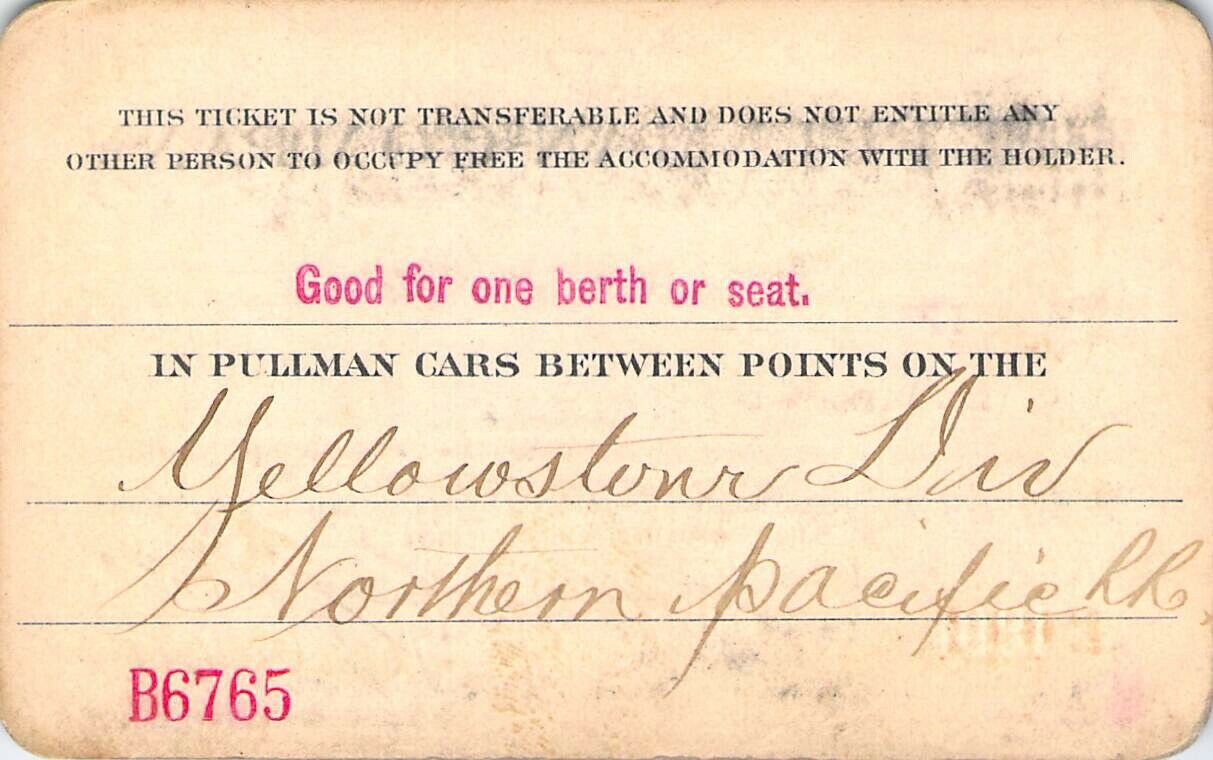 THIS TICKET IS NOT TRANSFERABLE AND DOES NOT ENTITLE ANY
OTHER PERSON TO OCCUPY FREE THE ACCOMMODATION WITH THE HOLDER.
Good for one berth or seat.
IN PULLMAN CARS BETWEEN POINTS ON THE
Yellowstone Div
Northern Pacific RR
B6765